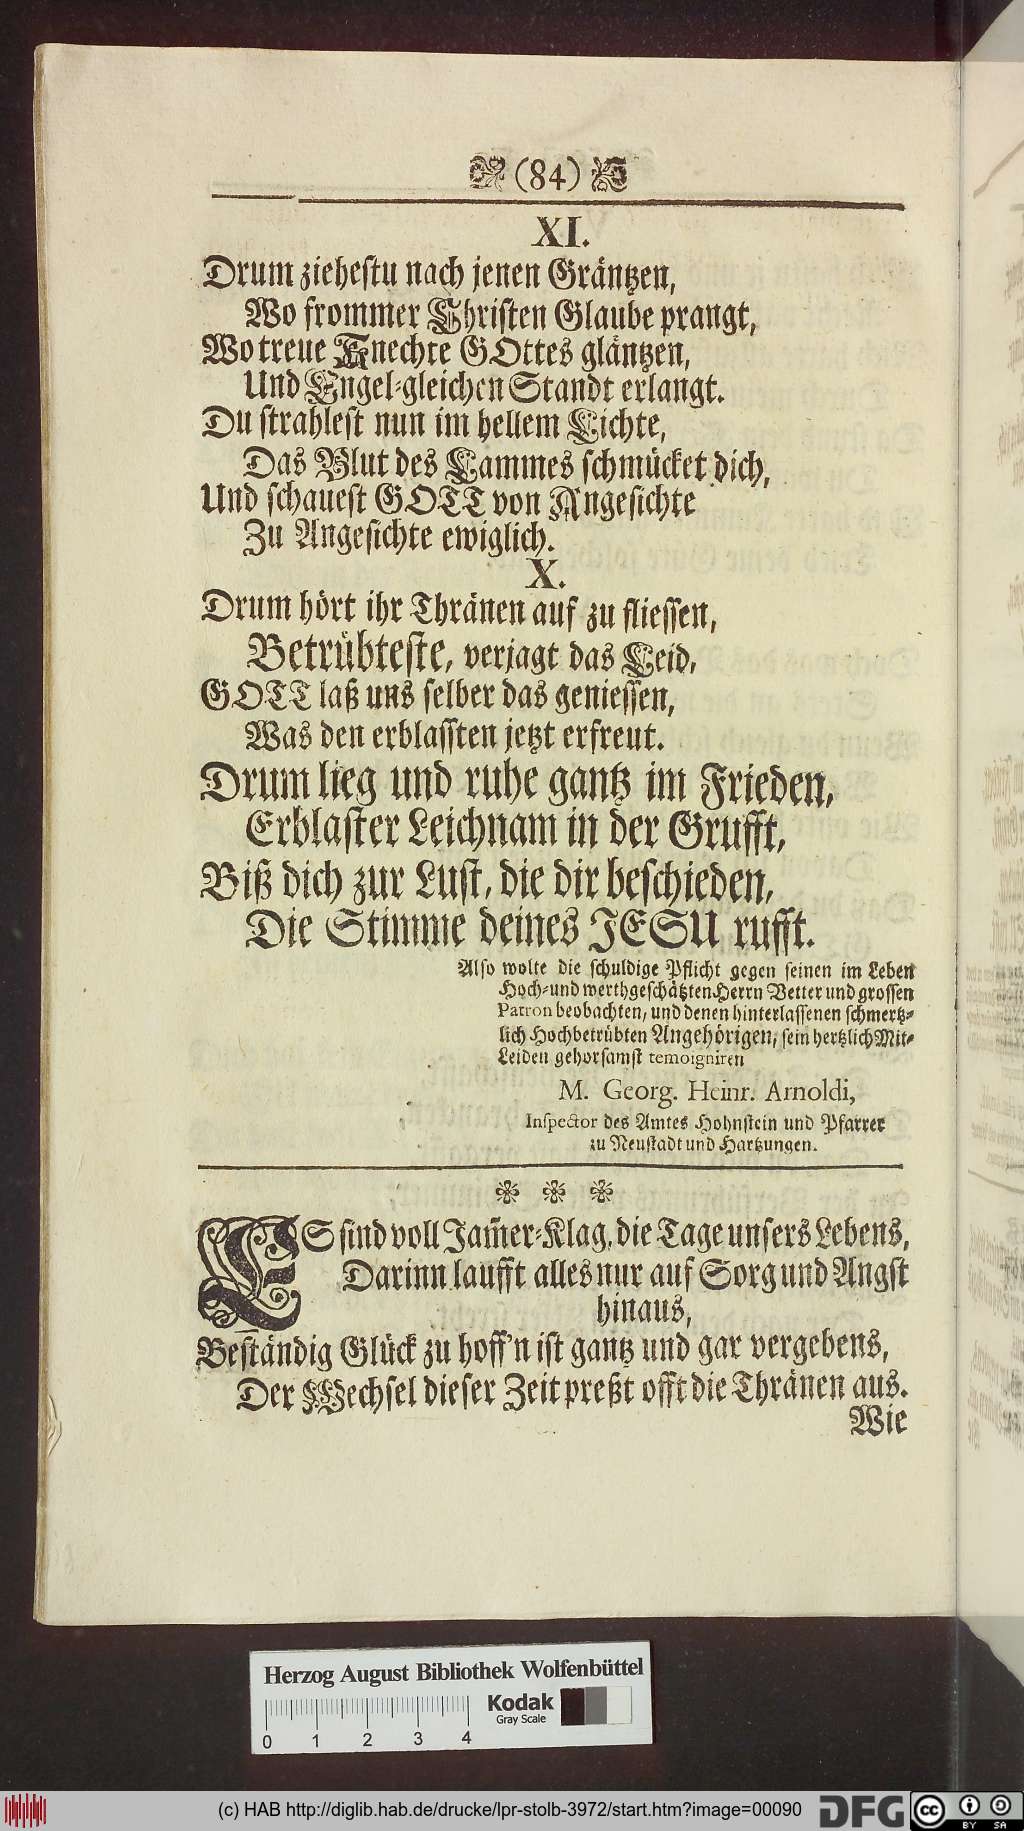 (84)
XI.
Drum ziehestu nach jenen Gräntzen,
Wo frommer Christen Glaube prangt,
Wo treue Knechte GOttes gläntzen,
Und Engel-gleichen Standt erlangt.
Du strahlest nun im hellem Lichte,
Das Blut des Lammes schmücket dich,
Und schauest GOTT von Angesichte
Zu Angesichte ewiglich.
X.
Drum hört ihr Thränen auf zu fliessen,
Betrübteste, verjagt das Leid,
GOTT laß uns selber das geniessen,
Was den erblassten jetzt erfreut.
Drum lieg und ruhe gantz im Frieden,
Erblaster Leichnam in der Grufft,
Biß dich zur Lust, die dir beschieden,
Die Stimme deines JESU rufft.
Also wolte die schuldige Pflicht gegen seinen im Leben
Hoch-und werthgeschätzten Herrn Vetter und grossen
Patron beobachten, und denen hinterlassenen schmertz-
lich Hochbetrübten Angehörigen, sein hertzlich Mit-
Leiden gehorsamst temoigniren
M. Georg. Heinr. Arnoldi,
Inspector des Amtes Hohnstein und Pfarrer
zu Neustadt und Hartzungen.
ES sind voll Jam̃er-Klag, die Tage unsers Lebens,
Darinn laufft alles nur auf Sorg und Angst
hinaus,
Beständig Glück zu hoff'n ist gantz und gar vergebens,
Der Wechsel dieser Zeit preßt offt die Thränen aus.
Wie
Herzog August Bibliothek Wolfenbüttel
Kodak
Gray Scale
0 1 2 3 4
(c) HAB http://diglib.hab.de/drucke/lpr-stolb-3972/start.htm?image=00090
DFG
cc BY SA